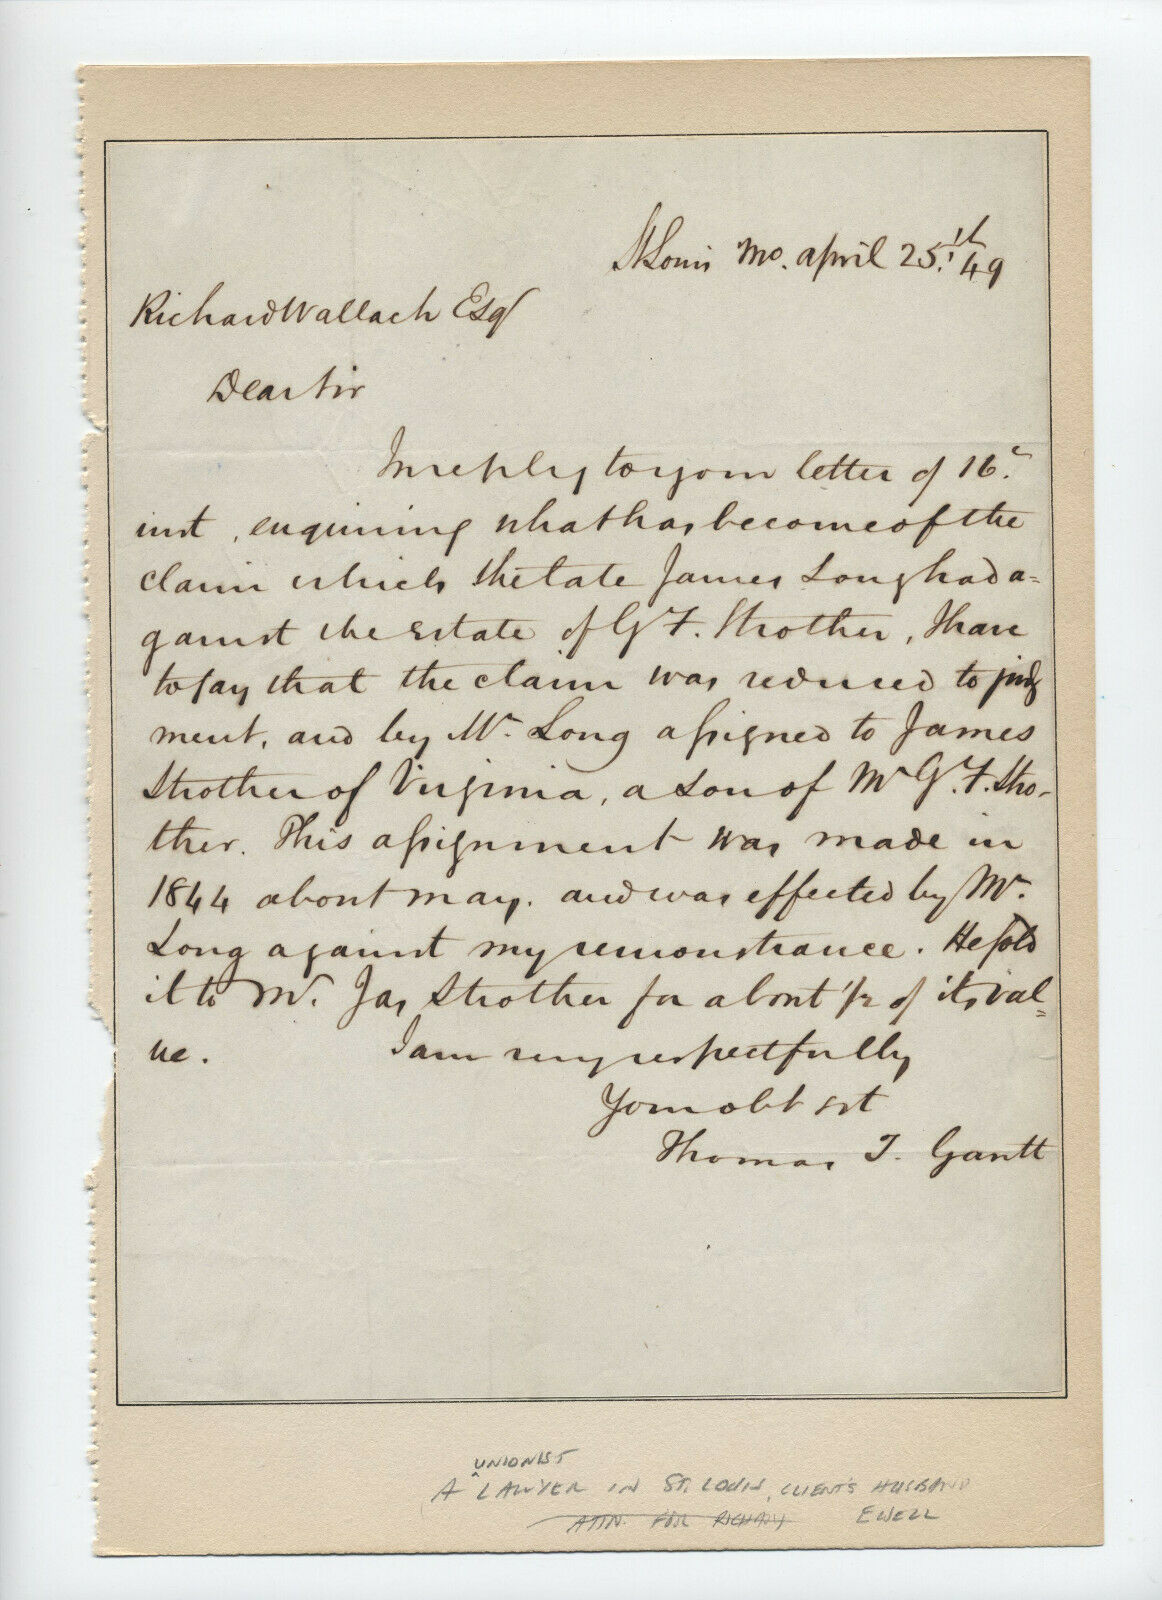 St Louis Mo. april 25.th 49
Richard Wallach Esqr
Dear Sir
In reply to your letter of 16.
inst, enquiring what has become of the
claim which the late James Long had a=
gainst the estate of G F. Strother, I have
to say that the claim was reduced to judg
ment, and by Mr Long assigned to James
Strother of Virginia, a son of Mr G. F. Stro-
ther. This assignment was made in
1844 about may. and was effected by Mr.
Long against my remonstrance. He sold
it to Mr. Jas Strother for about 1/2 of its val=
ue. I am very respectfully
Your obt svt
Thomas T. Gantt
UNIONIST
A ^ LAWYER IN ST. LOUIS, CLIENT'S HUSBAND
ATTN. FOR EWELL